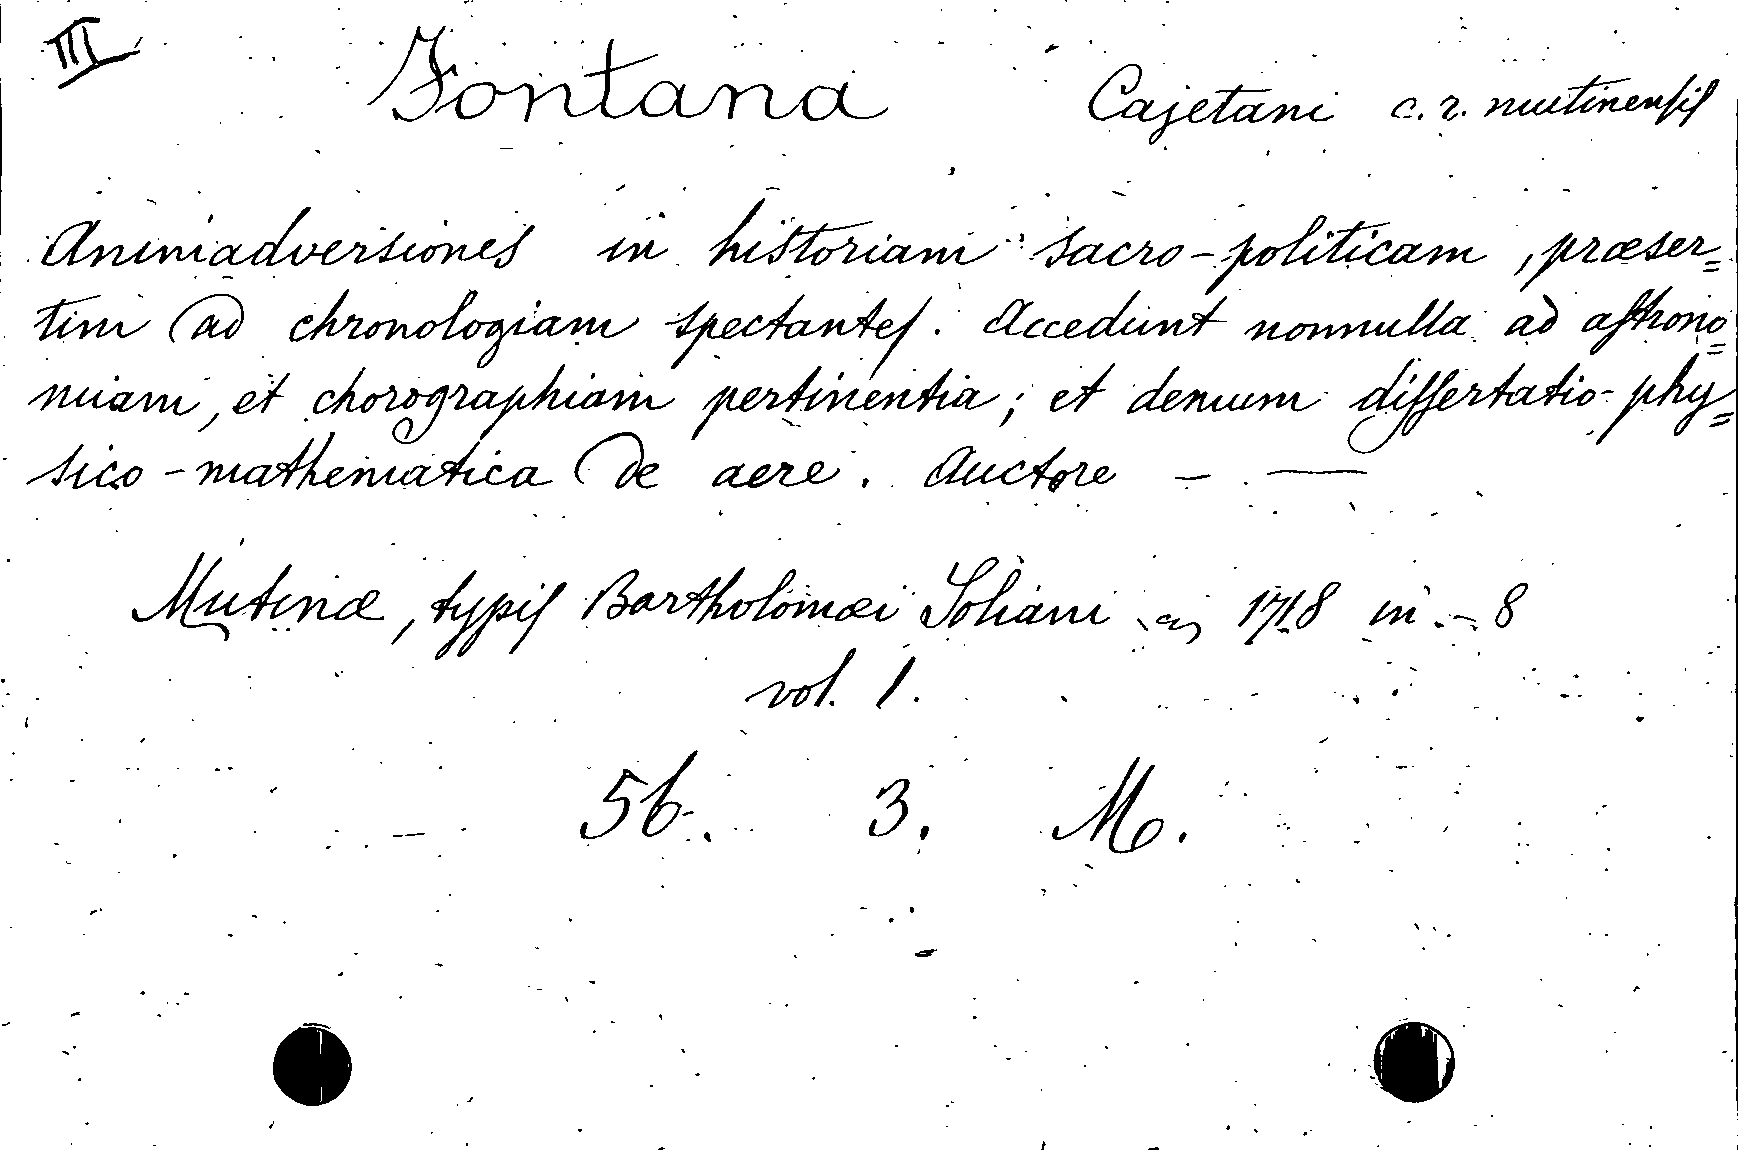 III
Fontana Cajetani c. r. mutinensis
Animadversiones in historiam sacro-politicam, præser=
tim ad chronologiam spectantes. Accedunt nonnulla ad astrono=
miam, et chorographiam pertinentia; et demum dissertatio-phy=
sico-mathematica de aere. Auctore - —
Mutinæ, typis Bartholomæi Soliani 1718 in - 8
vol. 1.
56. 3. M.